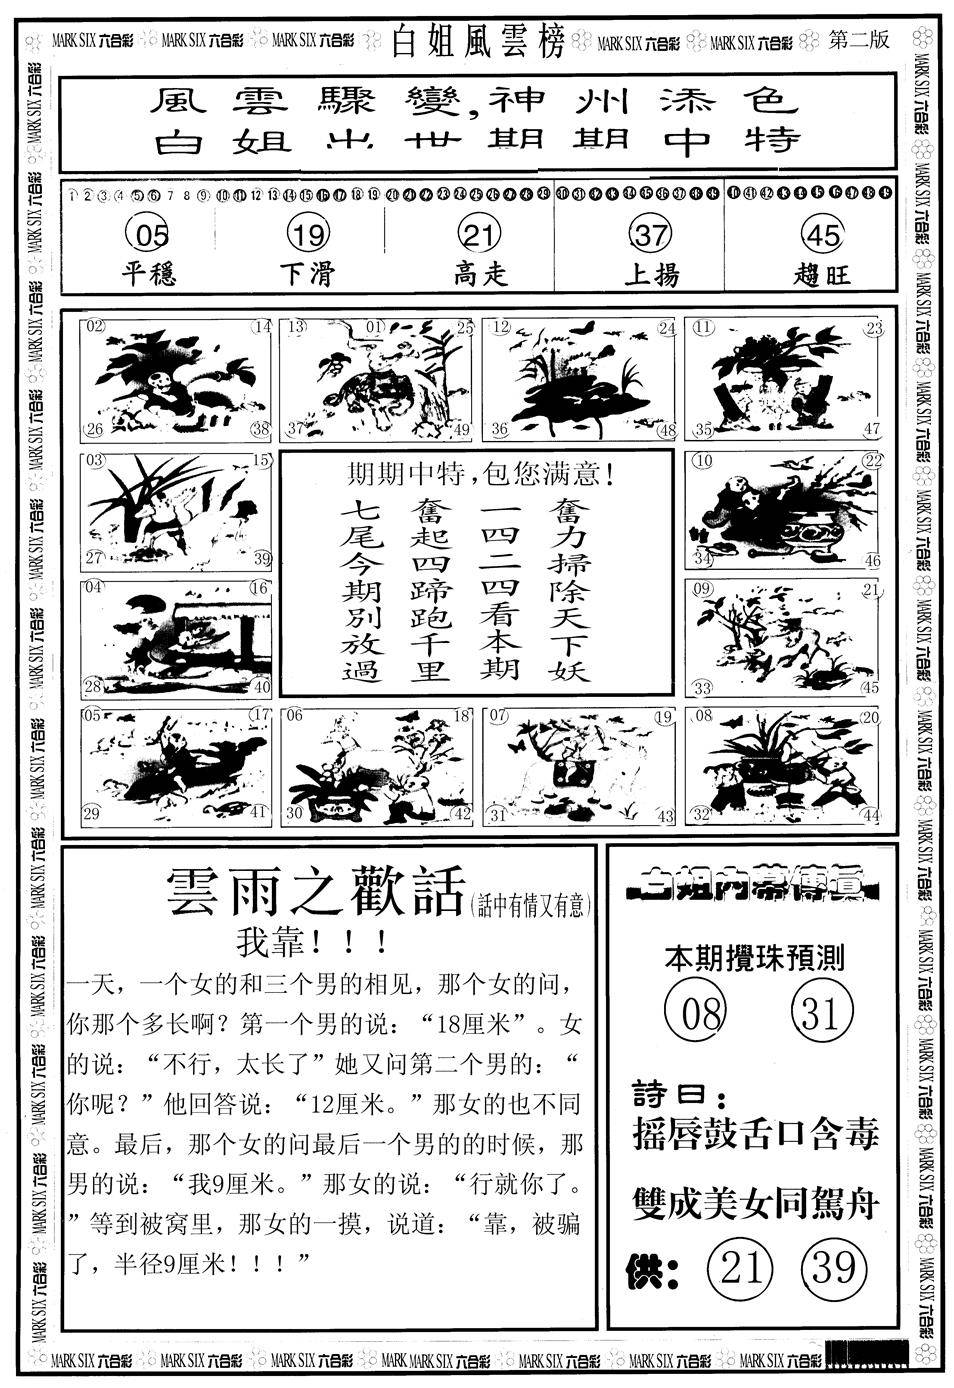 MARK SIX 六合彩 MARK SIX 六合彩 MARK SIX 六合彩 白姐風雲榜 MARK SIX 六合彩 MARK SIX 六合彩 第二版
風雲驟變,神州添色
白姐出世期期中特
1 2 3 4 5 6 7 8 9 10 11 12 13 14 15 16 17 18 19 20 21 22 23 24 25 26 27 28 29 30 31 32 33 34 35 36 37 38 39 40 41 42 43 44 45 46 47 48 49
05 19 21 37 45
平穩 下滑 高走 上揚 趨旺
02 14 13 01 25 12 24 11 23
26 38 37 49 36 48 35 47
03 15
27 39
04 16
28 40
期期中特,包您满意!
奮力掃除天下妖
一四二四看本期
奮起四蹄跑千里
七尾今期別放過
10 22
34 46
09 21
33 45
05 17 06 18 07 19 08 20
29 41 30 42 31 43 32 44
雲雨之歡話(話中有情又有意)
我靠!!!
一天，一个女的和三个男的相见，那个女的问，
你那个多长啊？第一个男的说：“18厘米”。女
的说：“不行，太长了”她又问第二个男的：“
你呢？”他回答说：“12厘米。”那女的也不同
意。最后，那个女的问最后一个男的的时候，那
男的说：“我9厘米。”那女的说：“行就你了。
”等到被窝里，那女的一摸，说道：“靠，被骗
了，半径9厘米！！！”
白姐内幕傳真
本期攪珠預測
08 31
詩曰:
摇唇鼓舌口含毒
雙成美女同駕舟
供: 21 39
MARK SIX 六合彩 MARK SIX 六合彩 MARK SIX 六合彩 MARK MARK SIX 六合彩 MARK SIX 六合彩 MARK SIX 六合彩 MARK SIX 六合彩